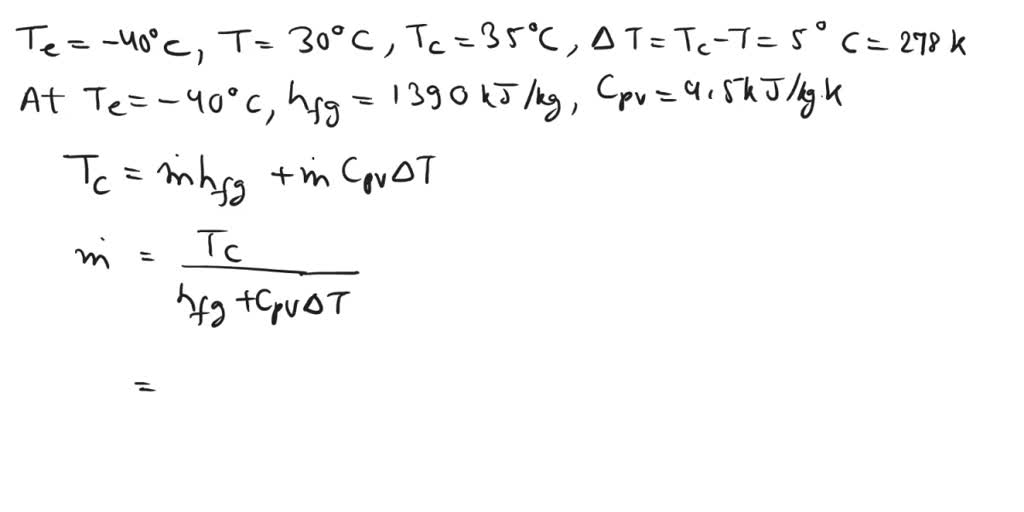 Te = -40°C, T = 30°C, Tc = 35°C, ΔT = Tc - T = 5°C = 278 k
At Te = -40°C, hfg = 1390 kJ/kg, Cpv = 4.5 kJ/kg.k
Tc = ṁhfg + ṁ CpvΔT
ṁ = Tc / (hfg + CpvΔT)
=